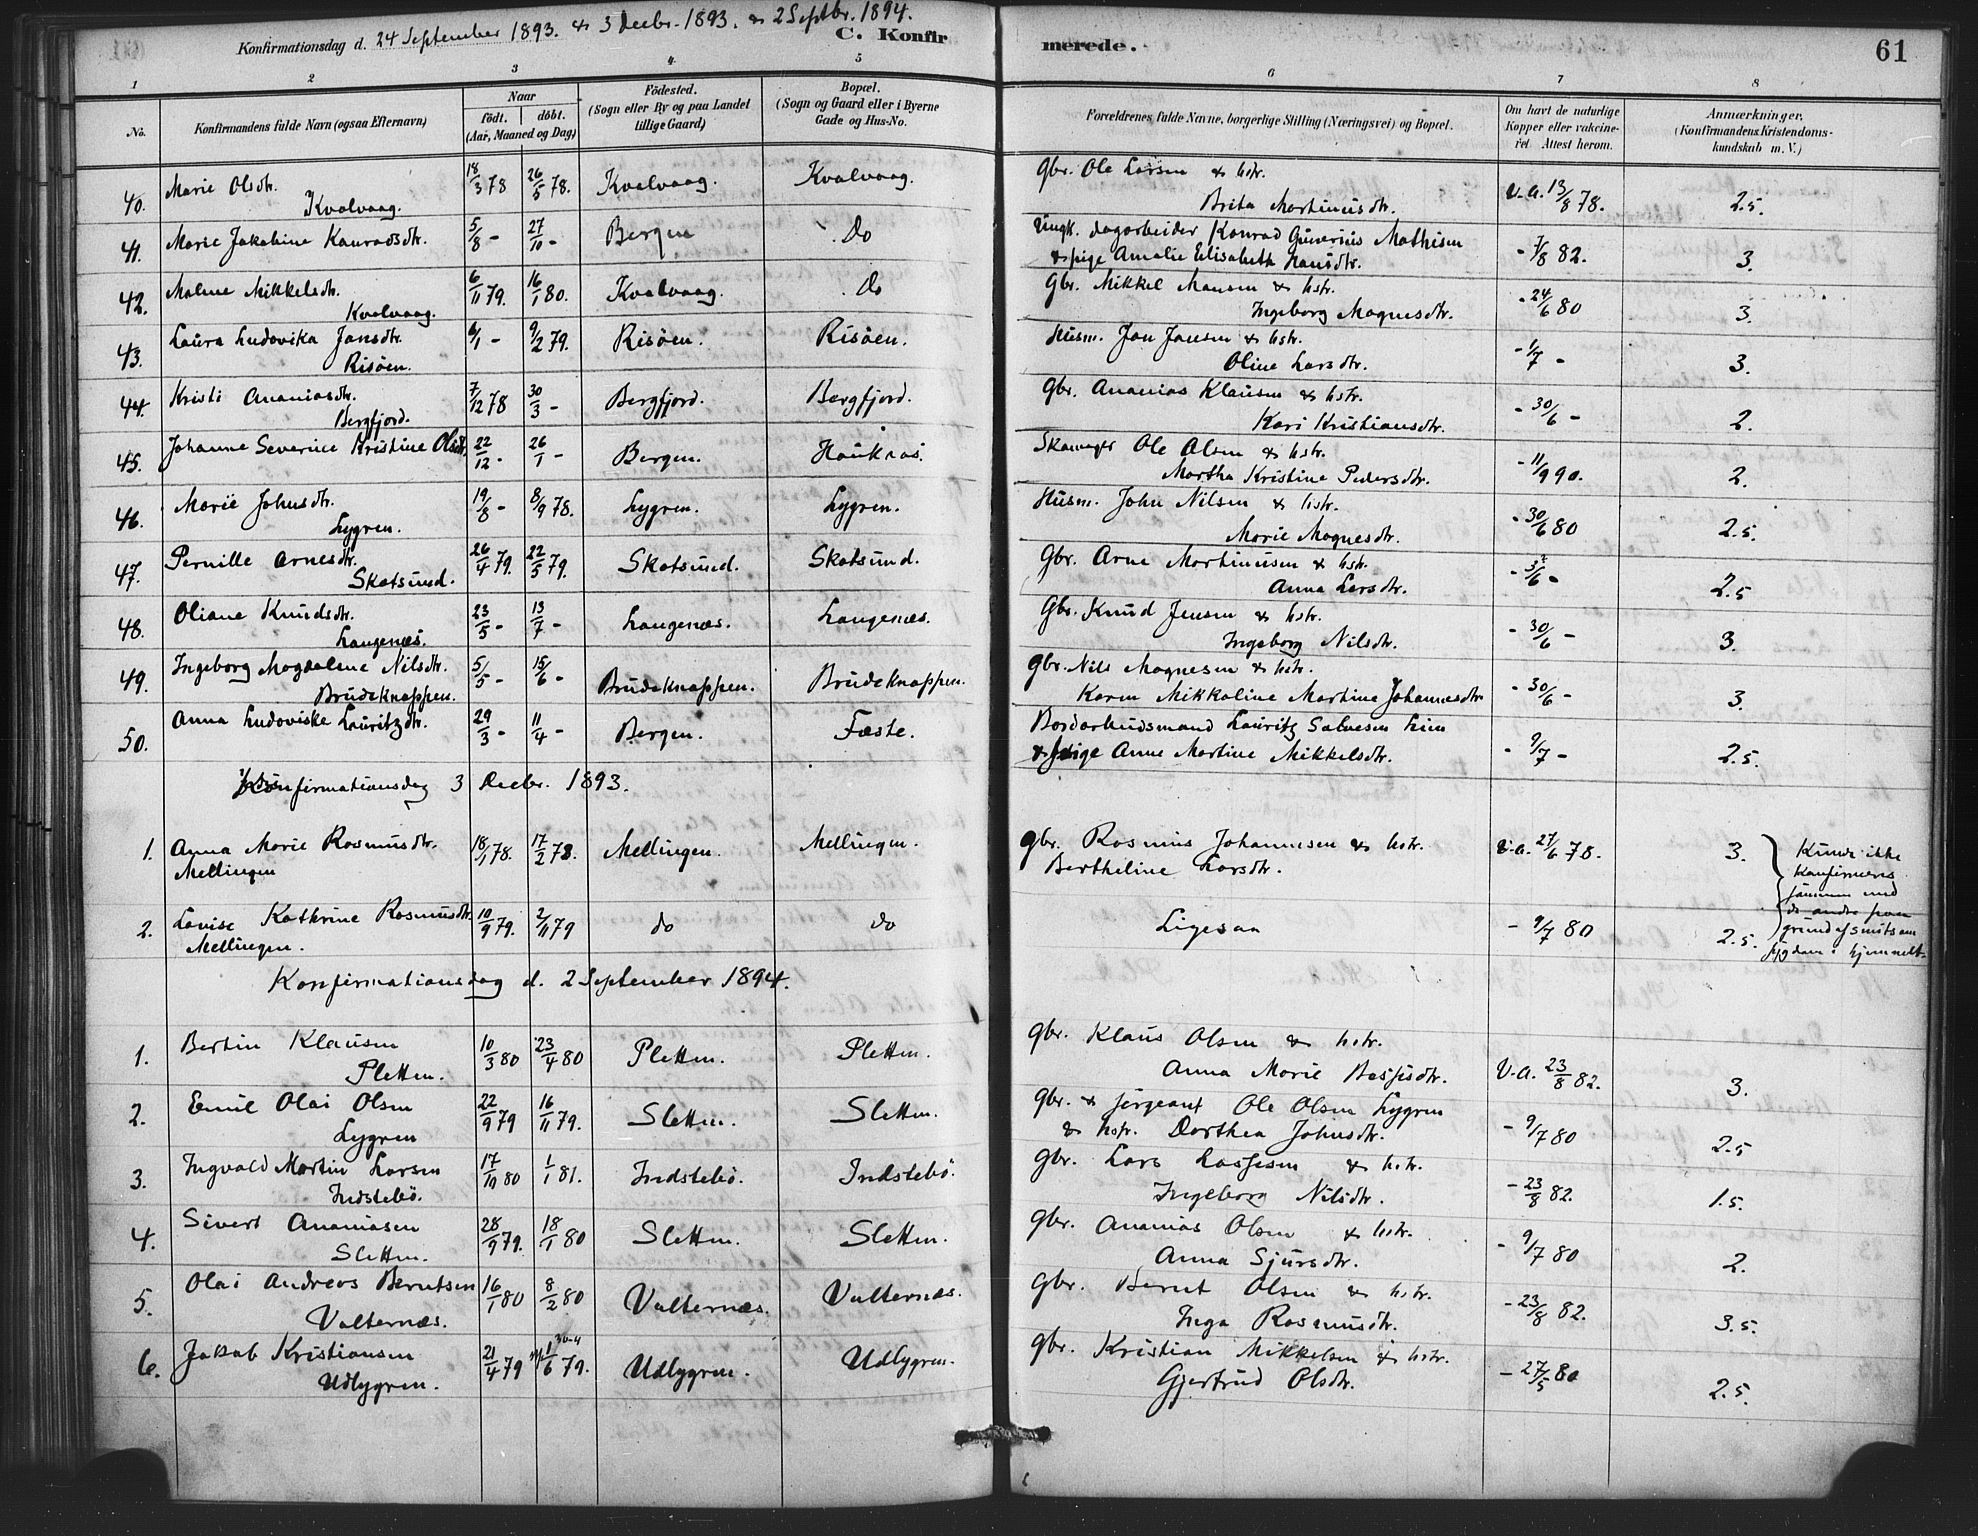 Konfirmationsdag d. 24 September 1893. & 3 Decbr. 1893. & 2 Septbr. 1894.
C. Konfirmerede.
61
1 2 3 4 5 6 7 8
No.
Konfirmandens fulde Navn (ogsaa Efternavn)
Naar
födt. döbt.
(Aar, Maaned og Dag)
Födested.
(Sogn eller By og paa Landet
tillige Gaard)
Bopæl.
(Sogn og Gaard eller i Byerne
Gade og Hus-No.
Forældrenes fulde Navne, borgerlige Stilling (Næringsvei) og Bopæl.
Om havt de naturlige
Kopper eller vakcine-
ret Attest herom.
Anmærkninger,
(Konfirmandens Kristendoms-
kundskab m. V.)
40. Marie Olsdtr. Kvalvaag. 18/3 78 26/5 78. Kvalvaag. Kvalvaag. Gbr. Ole Larsen & hstr. Brita Martinusdtr. V.A. 13/8 78. 2.5.
41. Marie Jakobine Konradsdtr. 5/8 - 27/10 - Bergen Do Ungk. dagarbeider Konrad Gunerius Mathisen & pige Amalie Elisabeth Hansdtr. - 7/8 82. 3.
42. Malene Mikkelsdtr. Kvalvaag. 6/11 79. 16/1 80. Kvalvaag. Do Gbr. Mikkel Monsen & hstr. Ingeborg Magnesdtr. - 24/6 80 3.
43. Laura Ludovika Jansdtr. Risöen. 6/1 - 9/2 79. Risöen. Risöen. Husm. Jan Jansen & hstr. Oline Larsdtr. - 1/7 - 3.
44. Kristi Ananiasdtr. Bergfjord. 7/12 78 30/3 - Bergfjord. Bergfjord. Gbr. Ananias Klausen & hstr. Kari Kristiansdtr. - 30/6 - 2.
45. Johanne Severine Kristine Olsdtr. 22/12 - 26/1 - Bergen. Haukaas. Skomager Ole Olsen & hstr. Martha Kristine Pedersdtr. - 11/9 90. 2.
46. Marie Johnsdtr. Lygren. 19/8 - 8/9 78. Lygren. Lygren. Husm. John Nilsen & hstr. Marie Magnesdtr. - 30/6 80 2.5.
47. Pernille Arnesdtr. Skotsund. 26/4 79. 22/5 79. Skotsund. Skotsund. Gbr. Arne Martinusen & hstr. Anna Larsdtr. 2.5
48. Oliane Knudsdtr. Langenæs. 23/5 - 13/7 - Langenæs. Langenæs. Gbr. Knud Jensen & hstr. Ingeborg Nilsdtr. - 30/6 - 3.
49. Ingeborg Magdalene Nilsdtr. Brudeknappen. 5/5 - 15/6 - Brudeknappen. Brudeknappen. Gbr. Nils Magnesen & hstr. Karen Mikkaline Martine Johannesdtr - 30/6 - 3.
50. Anna Ludoviske Lauritzdtr. 29/3 - 11/4 - Bergen. Fæste. Lauritz Salvesen & pige Anne Martine Mikkelsdtr. - 9/7 - 2.5.
Konfirmationsdag 3 Decbr. 1893.
1. Anna Marie Rasmusdtr. Mellingen 18/1 78. 17/2 78. Mellingen. Mellingen. Gbr. Rasmus Johannesen & hstr. Bertheline Larsdtr. V.A. 27/6 78. 3.
2. Lovise Kathrine Rasmusdtr. Mellingen. 10/9 79. 2/11 79 do do Ligesaa - 9/7 80 2.5.
Kunde ikke
konfirmeres
sammen med
de andre paa
grund af smitsom
sygdom i hjemmet.
Konfirmationsdag d. 2 September 1894.
1. Bertin Klausen Pletten. 10/3 80 23/4 80 Pletten. Pletten. Gbr. Klaus Olsen & hstr. Anna Marie V.A. 23/8 82. 3.
2. Emil Olai Olsen Lygren 22/9 79 16/11 79. Sletten. Sletten. Gbr. & sergeant Ole Olsen Lygren & hstr. Dorthea Johnsdtr. - 9/7 80 2.5
3. Ingvald Martin Larsen Indstebö. 17/10 80 1/1 81. Indstebö. Indstebö. Gbr. Lars Lassesen & hstr. Ingeborg Nilsdtr. - 23/8 82. 1.5.
4. Sivert Ananiasen Sletten. 28/9 79. 18/1 80 Sletten. Sletten. Gbr. Ananias Olsen & hstr. Anna Sjursdtr. - 9/7 80 2.
5. Olai Andreas Berntsen Valternæs. 16/1 80 8/2 80 Valternæs. Valternæs. Gbr. Bernt Olsen & hstr. Inga Rasmusdtr. - 23/8 82. 3.5.
6. Jakob Kristiansen Udlygren. 21/4 79 1/6 79. 30-4 Udlygren. Udlygren. Gbr. Kristian Mikkelsen & hstr. Gjertrud Olsdtr. - 27/5 80 2.5.